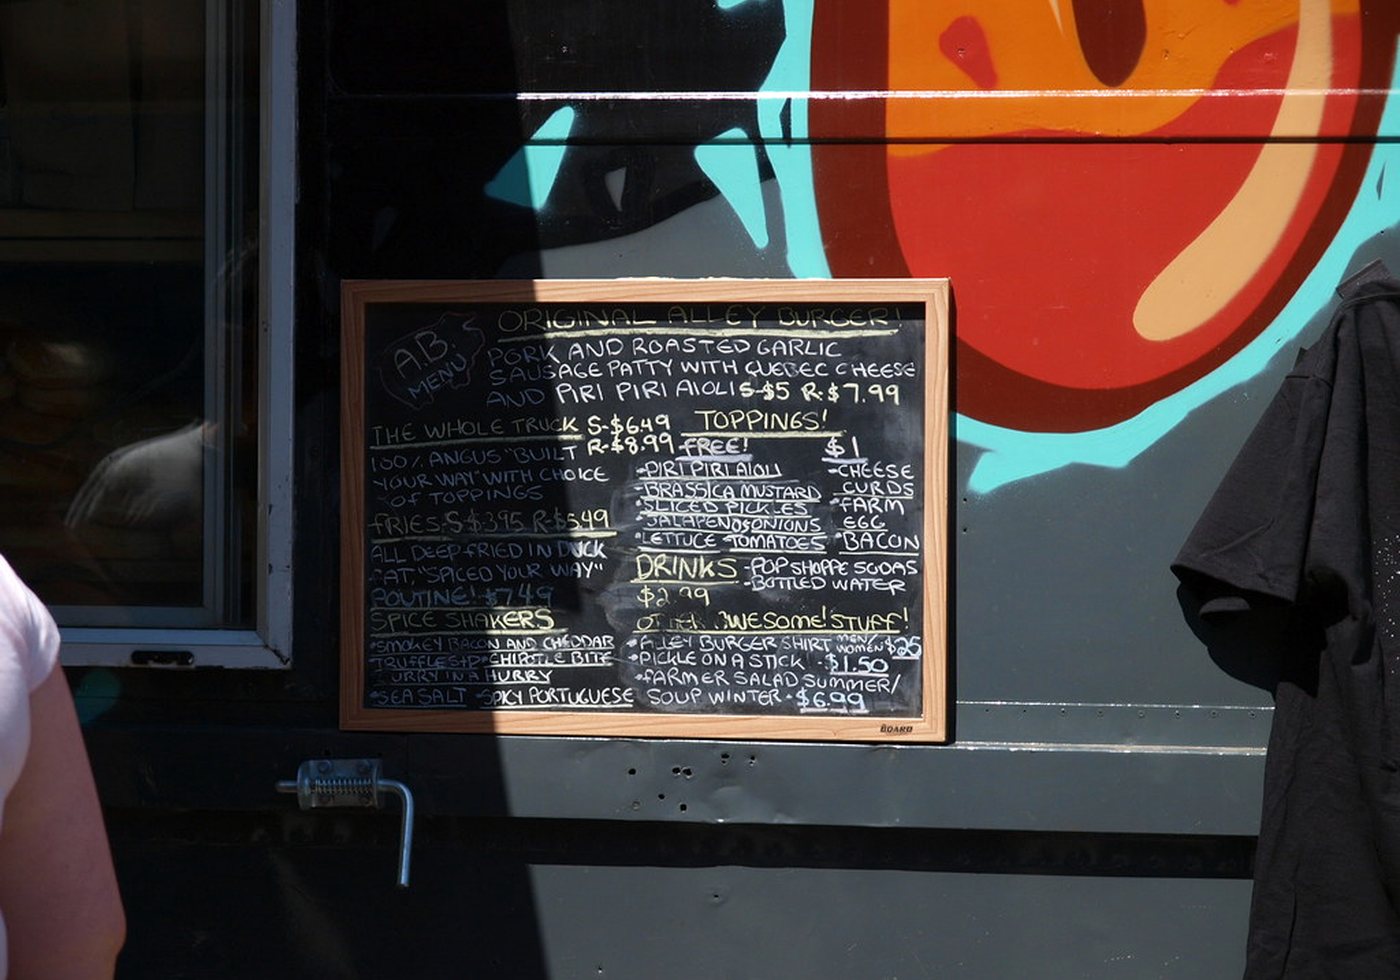 A.B.'S
MENU
ORIGINAL ALLEY BURGER!
PORK AND ROASTED GARLIC
SAUSAGE PATTY WITH QUEBEC CHEESE
AND PIRI PIRI AIOLI S-$5 R-$7.99
THE WHOLE TRUCK S-$6.49
R-$8.99
100% ANGUS "BUILT
YOUR WAY" WITH CHOICE
OF TOPPINGS
FRIES-S-$3.95 R-$5.49
ALL DEEP FRIED IN DUCK
FAT, "SPICED YOUR WAY"
POUTINE! $7.49
SPICE SHAKERS
•SMOKEY BACON AND CHEDDAR
•CHIPOTLE BITE
HURRY
•SEA SALT •SPICY PORTUGUESE
TOPPINGS!
FREE!
-PIRI PIRI AIOLI
•BRASSICA MUSTARD
•SLICED PICKLES
•JALAPENOS•ONIONS
•LETTUCE •TOMATOES
$1
-CHEESE
CURDS
•FARM
EGG
•BACON
DRINKS -POP SHOPPE SODAS
-BOTTLED WATER
$2.99
OTHER AWESOME! STUFF!
•ALLEY BURGER SHIRT MEN/
WOMEN $25
•PICKLE ON A STICK -$1.50
•FARMER SALAD SUMMER/
SOUP WINTER-$6.99
THE
BOARD